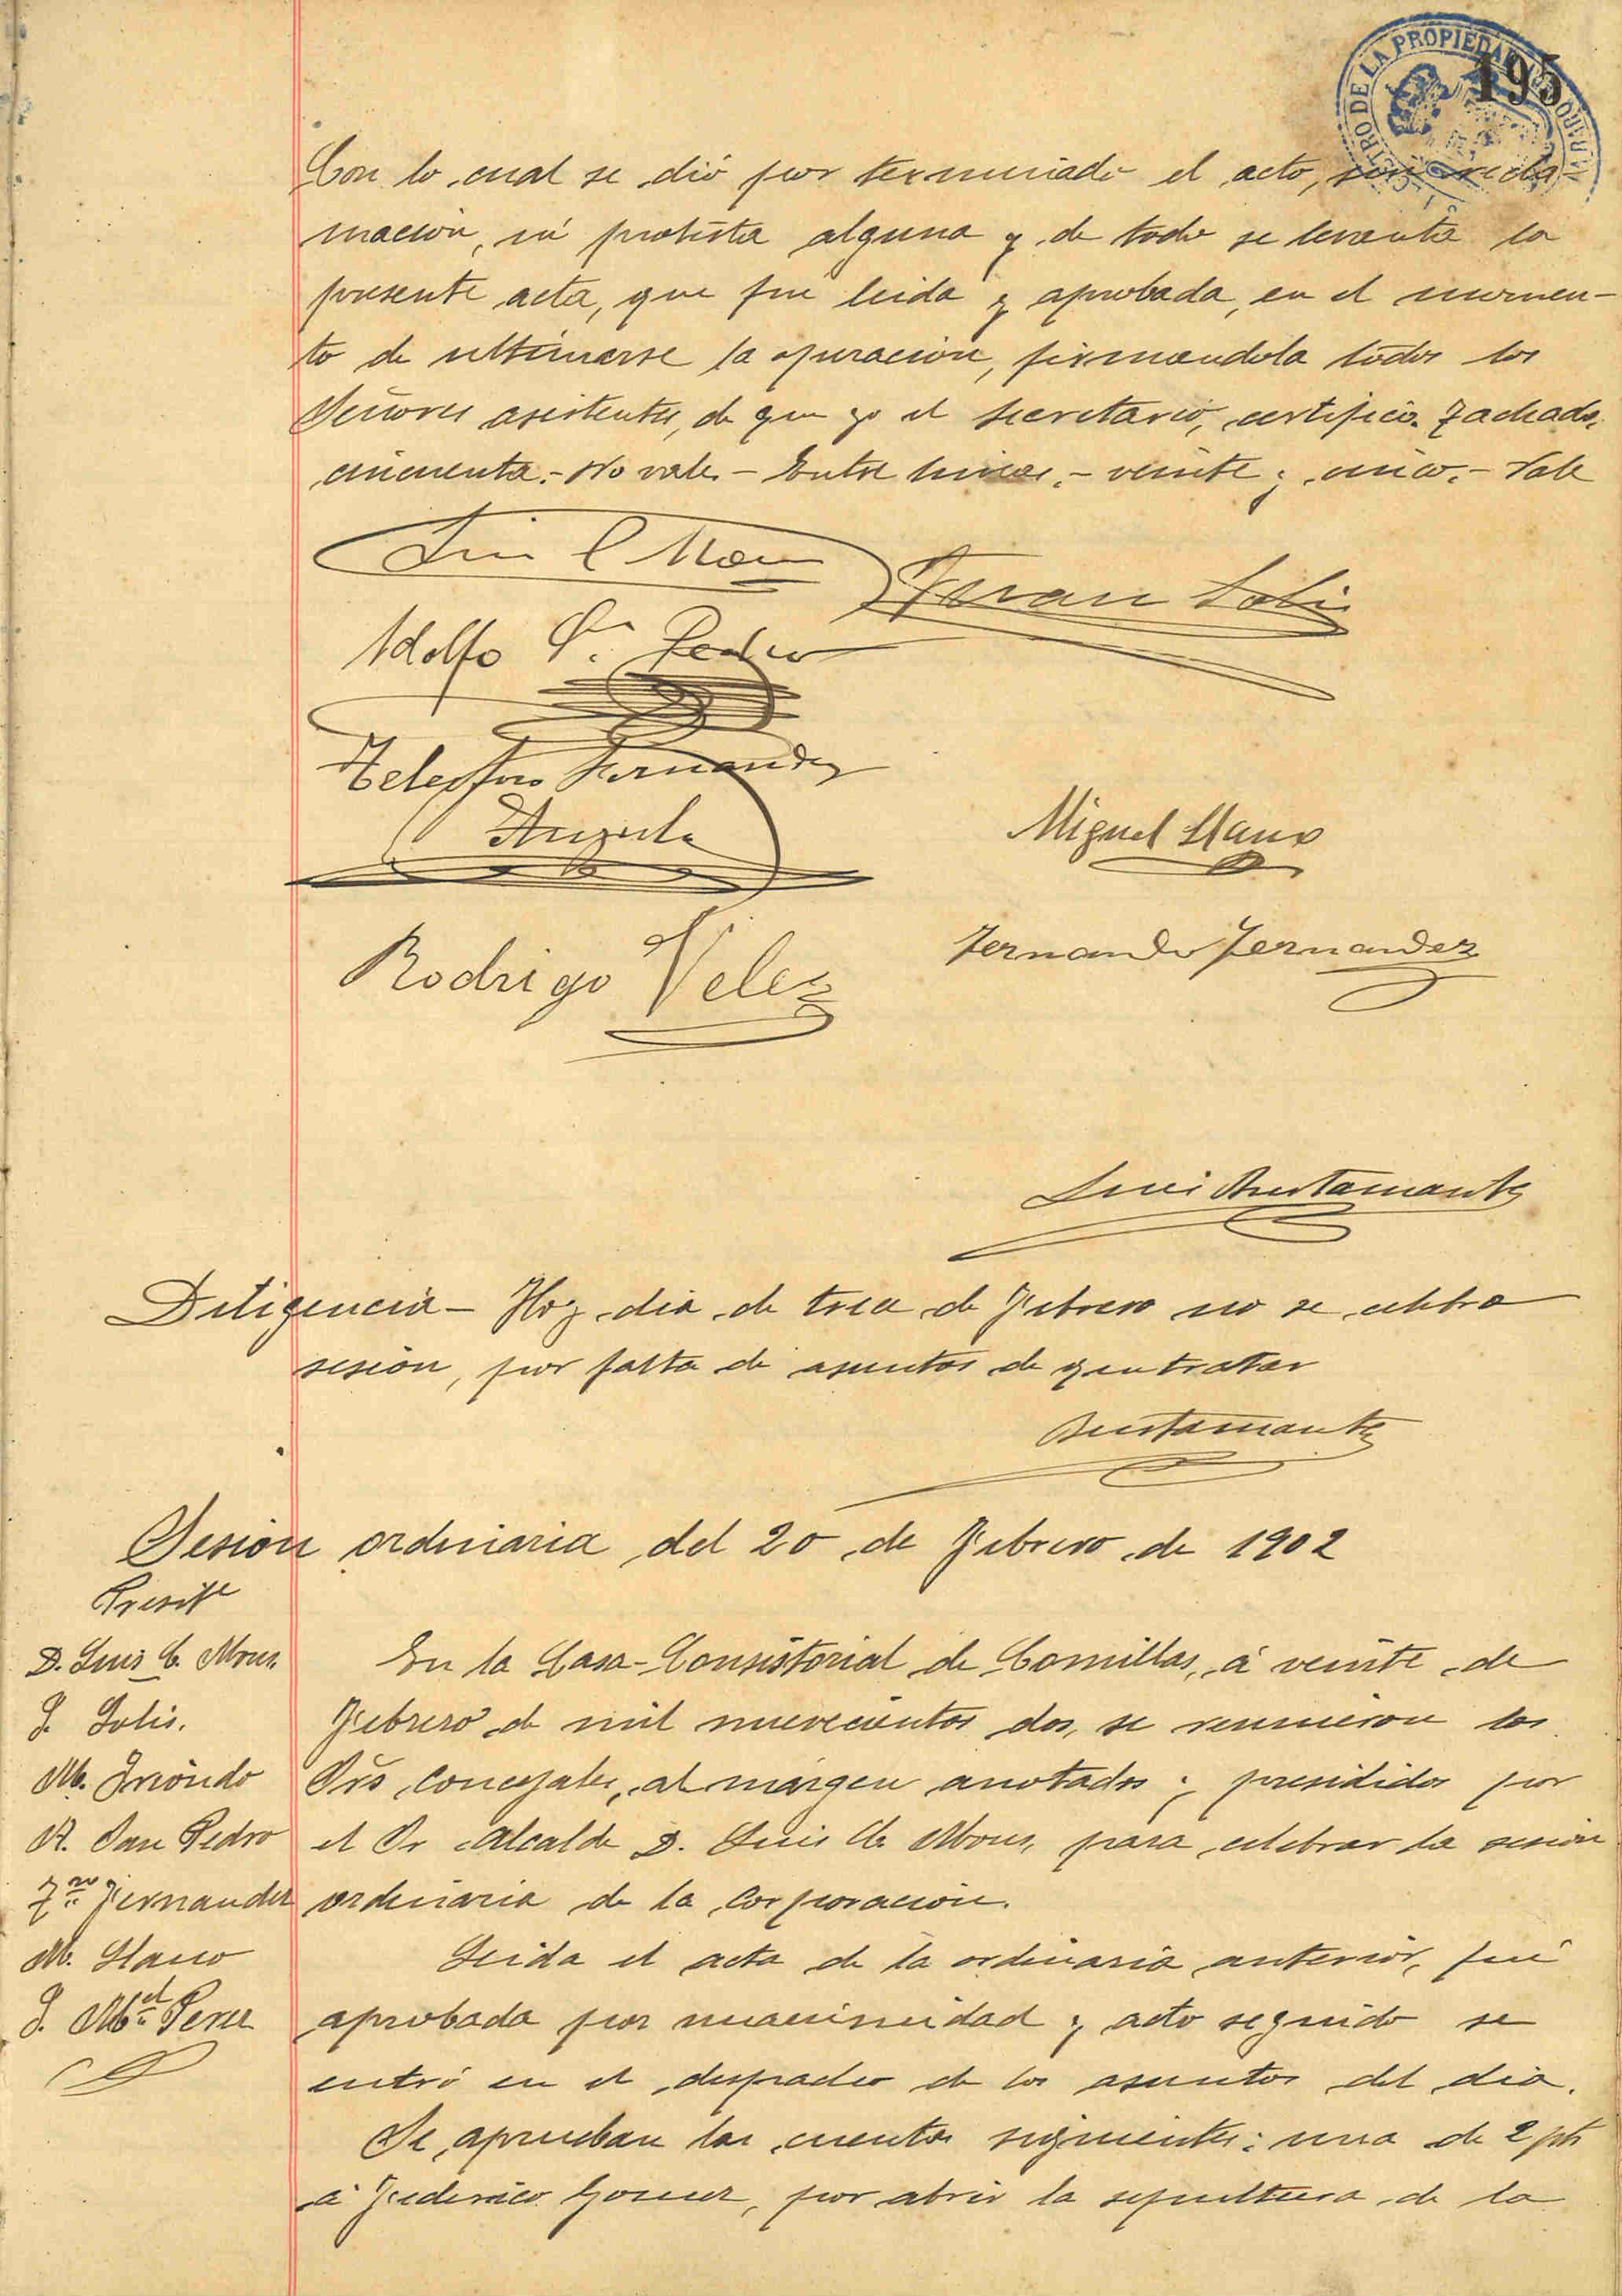 195
Con lo cual se dió por terminado el acto, sin recla-
macion, ni protesta alguna y de todo se levanta la
presente acta, que fue leida y aprobada, en el momen-
to de ultimarse la operacion, firmandola todos los
Señores asistentes, de que yo el Secretario, certifico. Tachado,
cincuenta.- No vale. - Entre lineas, - veinte y cinco. - Vale
Adolfo Sn. Pedro
Telesforo Fernandez
Miguel Llano
Rodrigo Velez
Fernando Fernandez
Luis Bustamante
Diligencia - Hoy dia de trece de Febrero no se celebra
sesion, por falta de asuntos de que tratar
Bustamante
Sesion ordinaria del 20 de Febrero de 1902
D. Luis C. Mons
J. Solis.
M. Iriondo
A. San Pedro
Fernandez
M. Llano
En la Casa-Consistorial de Comillas, á veinte de
Febrero de mil nuevecientos dos, se reunieron los
Srs Concejales, al margen anotados y presididos por
el Sr Alcalde D. Luis C. Mons, para celebrar la sesion
ordinaria de la Corporacion.
Leida el acta de la ordinaria anterior, fué
aprobada por unanimidad y acto seguido se
entró en el despacho de los asuntos del dia.
Se aprueban las cuentas siguientes: una de 2 pts
á Federico Gomez, por abrir la sepultura de la